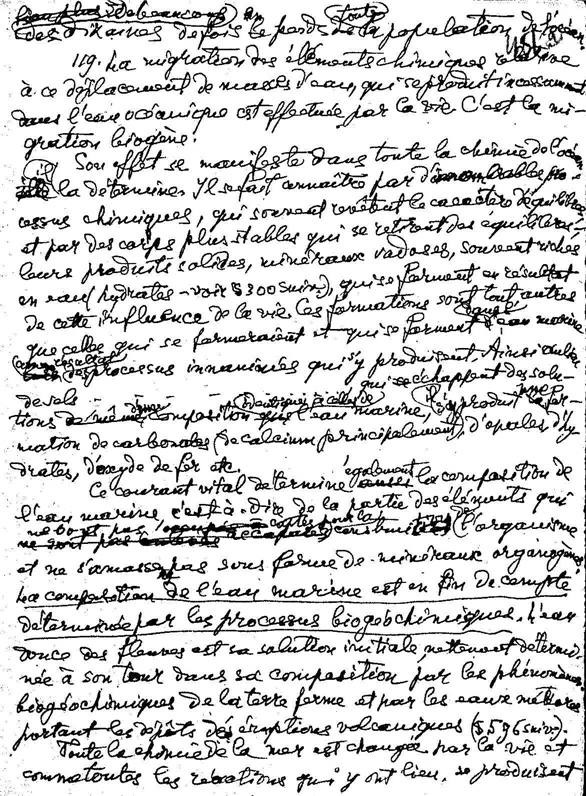 des dizaines de fois le poids de toute la population de l'océan
119. La migration des éléments chimiques relative
à ce déplacement de masses d'eau, qui se produit incessamment
dans l'eau océanique est effectuée par la vie. C'est la mi-
gration biogène.
Son effet se manifeste dans toute la chimie de l'océan
la détermine. Il se fait connaître par d' pro-
cessus chimiques, qui souvent revêtent le caractère d'équilibres
et par des corps plus stables qui se retirent des équilibres
leurs produits solides, minéraux vadoses, souvent riches
en eau (hydrates – voir § 300 suiv.), qui se forment en résultat
de cette influence de la vie. Ces formations sont tout autres
que celles qui se formeraient et qui se forment dans l'eau marine
des processus inanimés qui s'y produisent. Ainsi
qui s'échappent des solu-
tions de sels composition identique à celles de l'eau marine, il s'y produit une for-
mation de carbonates (de calcium principalement), d'opales, d'hy
drates, d'oxyde de fer etc.
Ce courant vital détermine également la composition de
l'eau marine c'est-à-dire de la partie des éléments qui
ne sont pas l'organisme
et ne s'amasse pas sous forme de minéraux organogènes
La composition de l'eau marine est en fin de compte
déterminée par les processus biogéochimiques. L'eau
douce des fleuves est sa solution initiale nettement détermi-
née à son tour dans sa composition par les phénomènes
biogéochimiques de la terre ferme et par les eaux météores
portant les dépôts des éruptions volcaniques (§ 596 suiv.).
Toute la chimie de la mer est changée par la vie et
comme toutes les réactions qui y ont lieu, se produisent